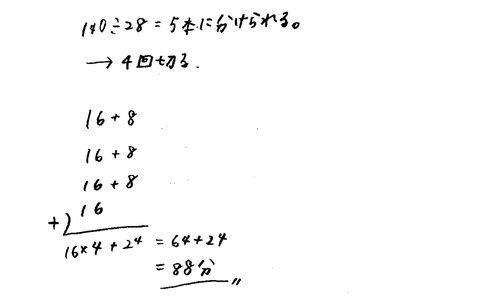 140÷28 = 5本に分けられる。
→ 4回切る.
16 + 8
16 + 8
16 + 8
+) 16
16×4 + 24 = 64+24
= 88分 〃